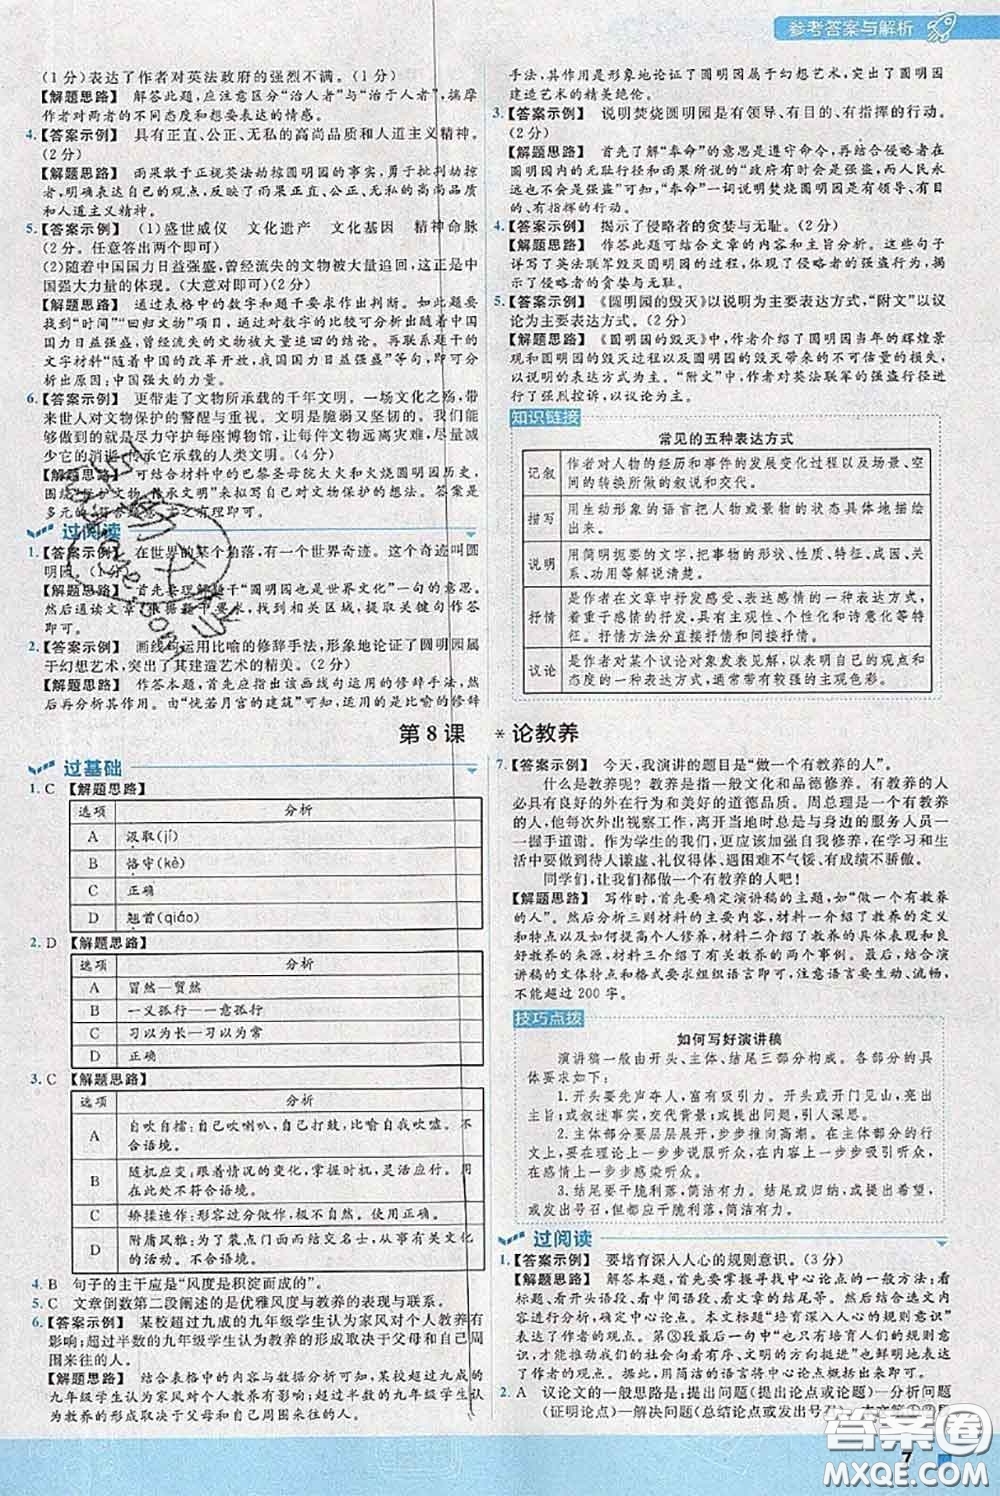 参考答案与解析
(1分)表达了作者对英法政府的强烈不满。(4分)
【解题思路】 解答此题,应注意区分“治人者”与“治于人者”,揣摩
作者对两者的不同态度和想要表达的情感。
4.【答案示例】 具有正直、公正、无私的高尚品质和人道主义精神。
(2分)
【解题思路】 雨果敢于正视英法劫掠圆明园的事实,勇于批判劫掠
者,明确表达自己的观点,反映了雨果正直、公正、无私的高尚品质
和人道主义精神。
5.【答案示例】 (1)盛世威仪 文化遗产 文化基因 精神命脉
(2分。任意答出两个即可)
(2)随着中国国力日益强盛,曾经流失的文物被大量追回,这正是中
国强大力量的体现。(大意对即可)(2分)
【解题思路】 通过表格中的数字和题干要求作出判断。如题要
找到“时间”“回归文物”项目,通过对数字的比较可分析出随着中国
国力日益强盛,曾经流失的文物被大量追回的结论。再联系题干的
文字材料“随着中国的改革开放,我国国力日益强盛”等句,即可分
析出:中国强大的力量。
6.【答案示例】 更带走了文物所承载的千年文明。一场文化之殇,带
来世人对文物保护的警醒与重视。文明是脆弱又坚韧的。我们能
够做到的就是尽力守护每座博物馆,让每件文物远离灾难,尽量减
少它的消逝,传承它承载的人类文明。(4分)
【解题思路】 可结合材料中的巴黎圣母院大火和火烧圆明园历史,
围绕“保护文物,传承文明”来拟写自己对文物保护的想法。答案是
多元的,符合题意,言之有理即可。
过阅读
1.【答案示例】 在世界的某个角落,有一个世界奇迹。这个奇迹叫圆
明园。(1分)
【解题思路】 首先要理解题干“圆明园也是世界文化”一句的意思。
然后通读文章,依据题干要求,找到相关区域,提取关键句作答即
可。
2.【答案示例】 画线句运用比喻的修辞手法,形象地论证了圆明园属
于幻想艺术,突出了其建造艺术的精美。(2分)
【解题思路】 作答本题,首先应指出该画线句运用的修辞手法,然后
再分析其作用。由“恍若月宫的建筑”可知,该句运用了比喻的修辞
手法,其作用是形象地论证了圆明园属于幻想艺术,突出了圆明园
建造艺术的精美绝伦。
3.【答案示例】 说明焚烧圆明园是有领导、有目的、有指挥的行动。
(2分)
【解题思路】 首先了解“奉命”的意思是遵守命令,再结合侵略者在
圆明园内的无耻行径和雨果所说的“政府有时会是强盗,而人民永
远也不会是强盗”可知,“奉命”一词说明焚烧圆明园是有领导、有目
的、有指挥的行动。
4.【答案示例】 揭示了侵略者的贪婪与无耻。(2分)
【解题思路】 作答此题可结合文章的内容和主旨分析。这些句子
详写了英法联军毁灭圆明园的过程,体现了侵略者的强盗行为,揭
示了侵略者的贪婪与无耻。
5.【答案示例】 《圆明园的毁灭》以说明为主要表达方式,“附文”以议
论为主要表达方式。(2分)
【解题思路】 《圆明园的毁灭》中,作者介绍了圆明园当年的辉煌景
观和圆明园的毁灭过程以及圆明园的毁灭带来的不可估量的损失,
以说明的表达方式为主。“附文”中,作者对英法联军的强盗行径进
行了强烈控诉,以议论为主。
知识链接
常见的五种表达方式
记叙 作者对人物的经历和事件的发展变化过程以及场景、空
间的转换所做的叙说和交代。
描写 用生动形象的语言把人物或景物的状态具体地描绘
出来。
说明 用简明扼要的文字,把事物的形状、性质、特征、成因、关
系、功用等解说清楚。
抒情 是作者在文章中抒发感受、表达感情的一种表达方式,
着重于感情的抒发,具有主观性、个性化和诗意化等特
征。抒情方法分直接抒情和间接抒情。
议论 是作者对某个议论对象发表见解,以表明自己的观点和
态度的一种表达方式,通常带有较强的主观色彩。
第8课 *论教养
过基础
1.C 【解题思路】
选项 分析
A 汲取(jí)
B 恪守(kè)
C 正确
D 翘首(qiáo)
2.D 【解题思路】
选项 分析
A 冒然—贸然
B 一义孤行—一意孤行
C 习以为长—习以为常
D 正确
3.C 【解题思路】
选项 分析
A 自吹自擂:自己吹喇叭,自己打鼓,比喻自我吹嘘。不
合语境。
B 随机应变:跟着情况的变化,掌握时机,灵活应付。用
在此处不符合语境。
C 矫揉造作:形容过分做作,极不自然。符合语境。
D 附庸风雅:为了装点门面而结交名士,从事有关文化
的活动。不合语境。
4.B 句子的主干应是“风度是积淀而成的”。
5.C 文章倒数第二段阐述的是优雅风度与教养的表现与联系。
6.【答案示例】 某校超过九成的九年级学生认为家风对个人教养有
影响;超过半数的九年级学生认为教养的形成取决于父母和自己周
围来往的人。
【解题思路】 结合表格中的数据和文字材料可知,某校超过九成的
九年级学生认为家风对个人教养有影响;超过半数的九年级学生认
为教养的形成取决于父母和自己周围来往的人。
7.【答案示例】 今天,我演讲的题目是“做一个有教养的人”。
什么是教养呢?教养是指一般文化和品德修养。有教养的人
必具有良好的外在行为和美好的道德品质。周总理是一个有教养
的人,他每次外出视察工作,离开当地时总与身边的服务人员一
一握手道谢。作为学生的我们,更应该加强自我修养,在学习和生
活中要做到待人谦虚、礼仪得体、遇困难不气馁、有成绩不骄傲。
同学们,让我们都做一个有教养的人吧!
【解题思路】 写作时,首先要确定演讲稿的主题,如“做一个有教养
的人”。然后分析三则材料的主要内容,材料一介绍了教养的定义
和特点以及如何提高个人修养,材料二介绍了教养的具体表现和良
好教养的来源,材料三介绍了有关教养的两个事例。最后,结合演
讲稿的文体特点和格式要求组织语言即可,注意语言要生动、流畅,
不能超过200字。
技巧点拨
如何写好演讲稿
演讲稿一般由开头、主体、结尾三部分构成。各部分的具
体要求如下:
1.开头要先声夺人,富有吸引力。开头或开门见山,亮出
主旨;或叙述事实,交代背景;或提出问题,引人深思。
2.主体部分要层层展开,步步推向高潮。在主体部分的行文
上,要在理论上一步步说服听众,在内容上一步步吸引听众,
在感情上一步步感染听众。
3.结尾要干脆利落,简洁有力。结尾或归纳,或提出希望,
或发出号召,但应干脆利落,简洁有力。
过阅读
1.【答案示例】 要培育深入人心的规则意识。(3分)
【解题思路】 解答本题,首先要掌握寻找中心论点的一般方法:看
标题、看开头语段、看中间语段、看文章的结尾等。然后结合选文内
容进行分析,确定文章的中心论点。本文标题“培育深入人心的规则意识”
表达了作者的观点。第③段最后一句中“也只有培育人们的规则意
识,才能推动我们的社会向着有序、文明的方向挺进”也鲜明地表达
了作者的观点。此题用简洁的语言将中心论点概括出来即可。
2.A 议论文的一般思路是:提出问题(提出论点或论题)—分析问题
(证明论点)—解决问题(总结论点或发出号召)。本文第①②段
7
答案圈
MXQE.COM